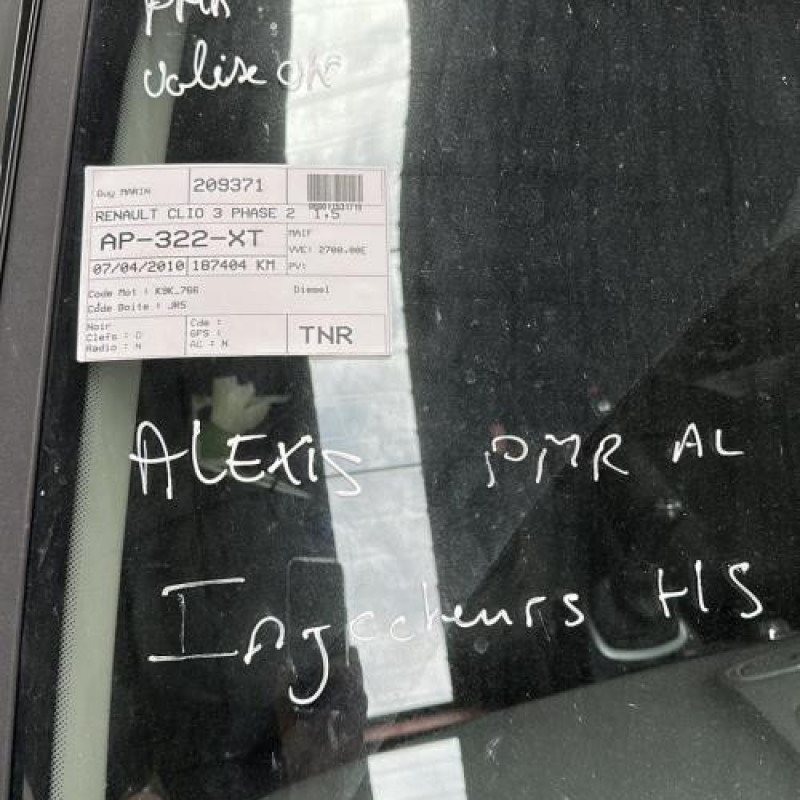 PMR
valise OK
Guy MARIN 209371
RENAULT CLIO 3 PHASE 2 1.5
AP-322-XT MAIF
VVE: 2700.00E
07/04/2010 187404 KM PV:
Code Mot : K9K_766 Diesel
Code Boite : JR5
Noir Cde :
Clefs : O GPS :
Radio : N AC : N TNR
ALEXIS PMR AL
Injecteurs HS